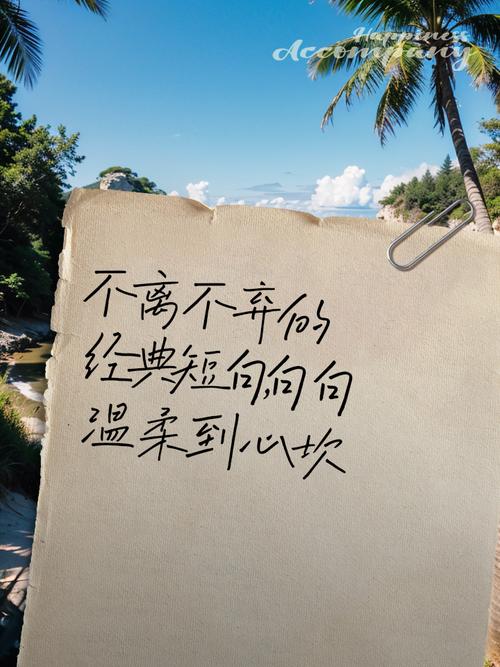 Happiness
Accompany
不离不弃的
经典短句,句句
温柔到心坎